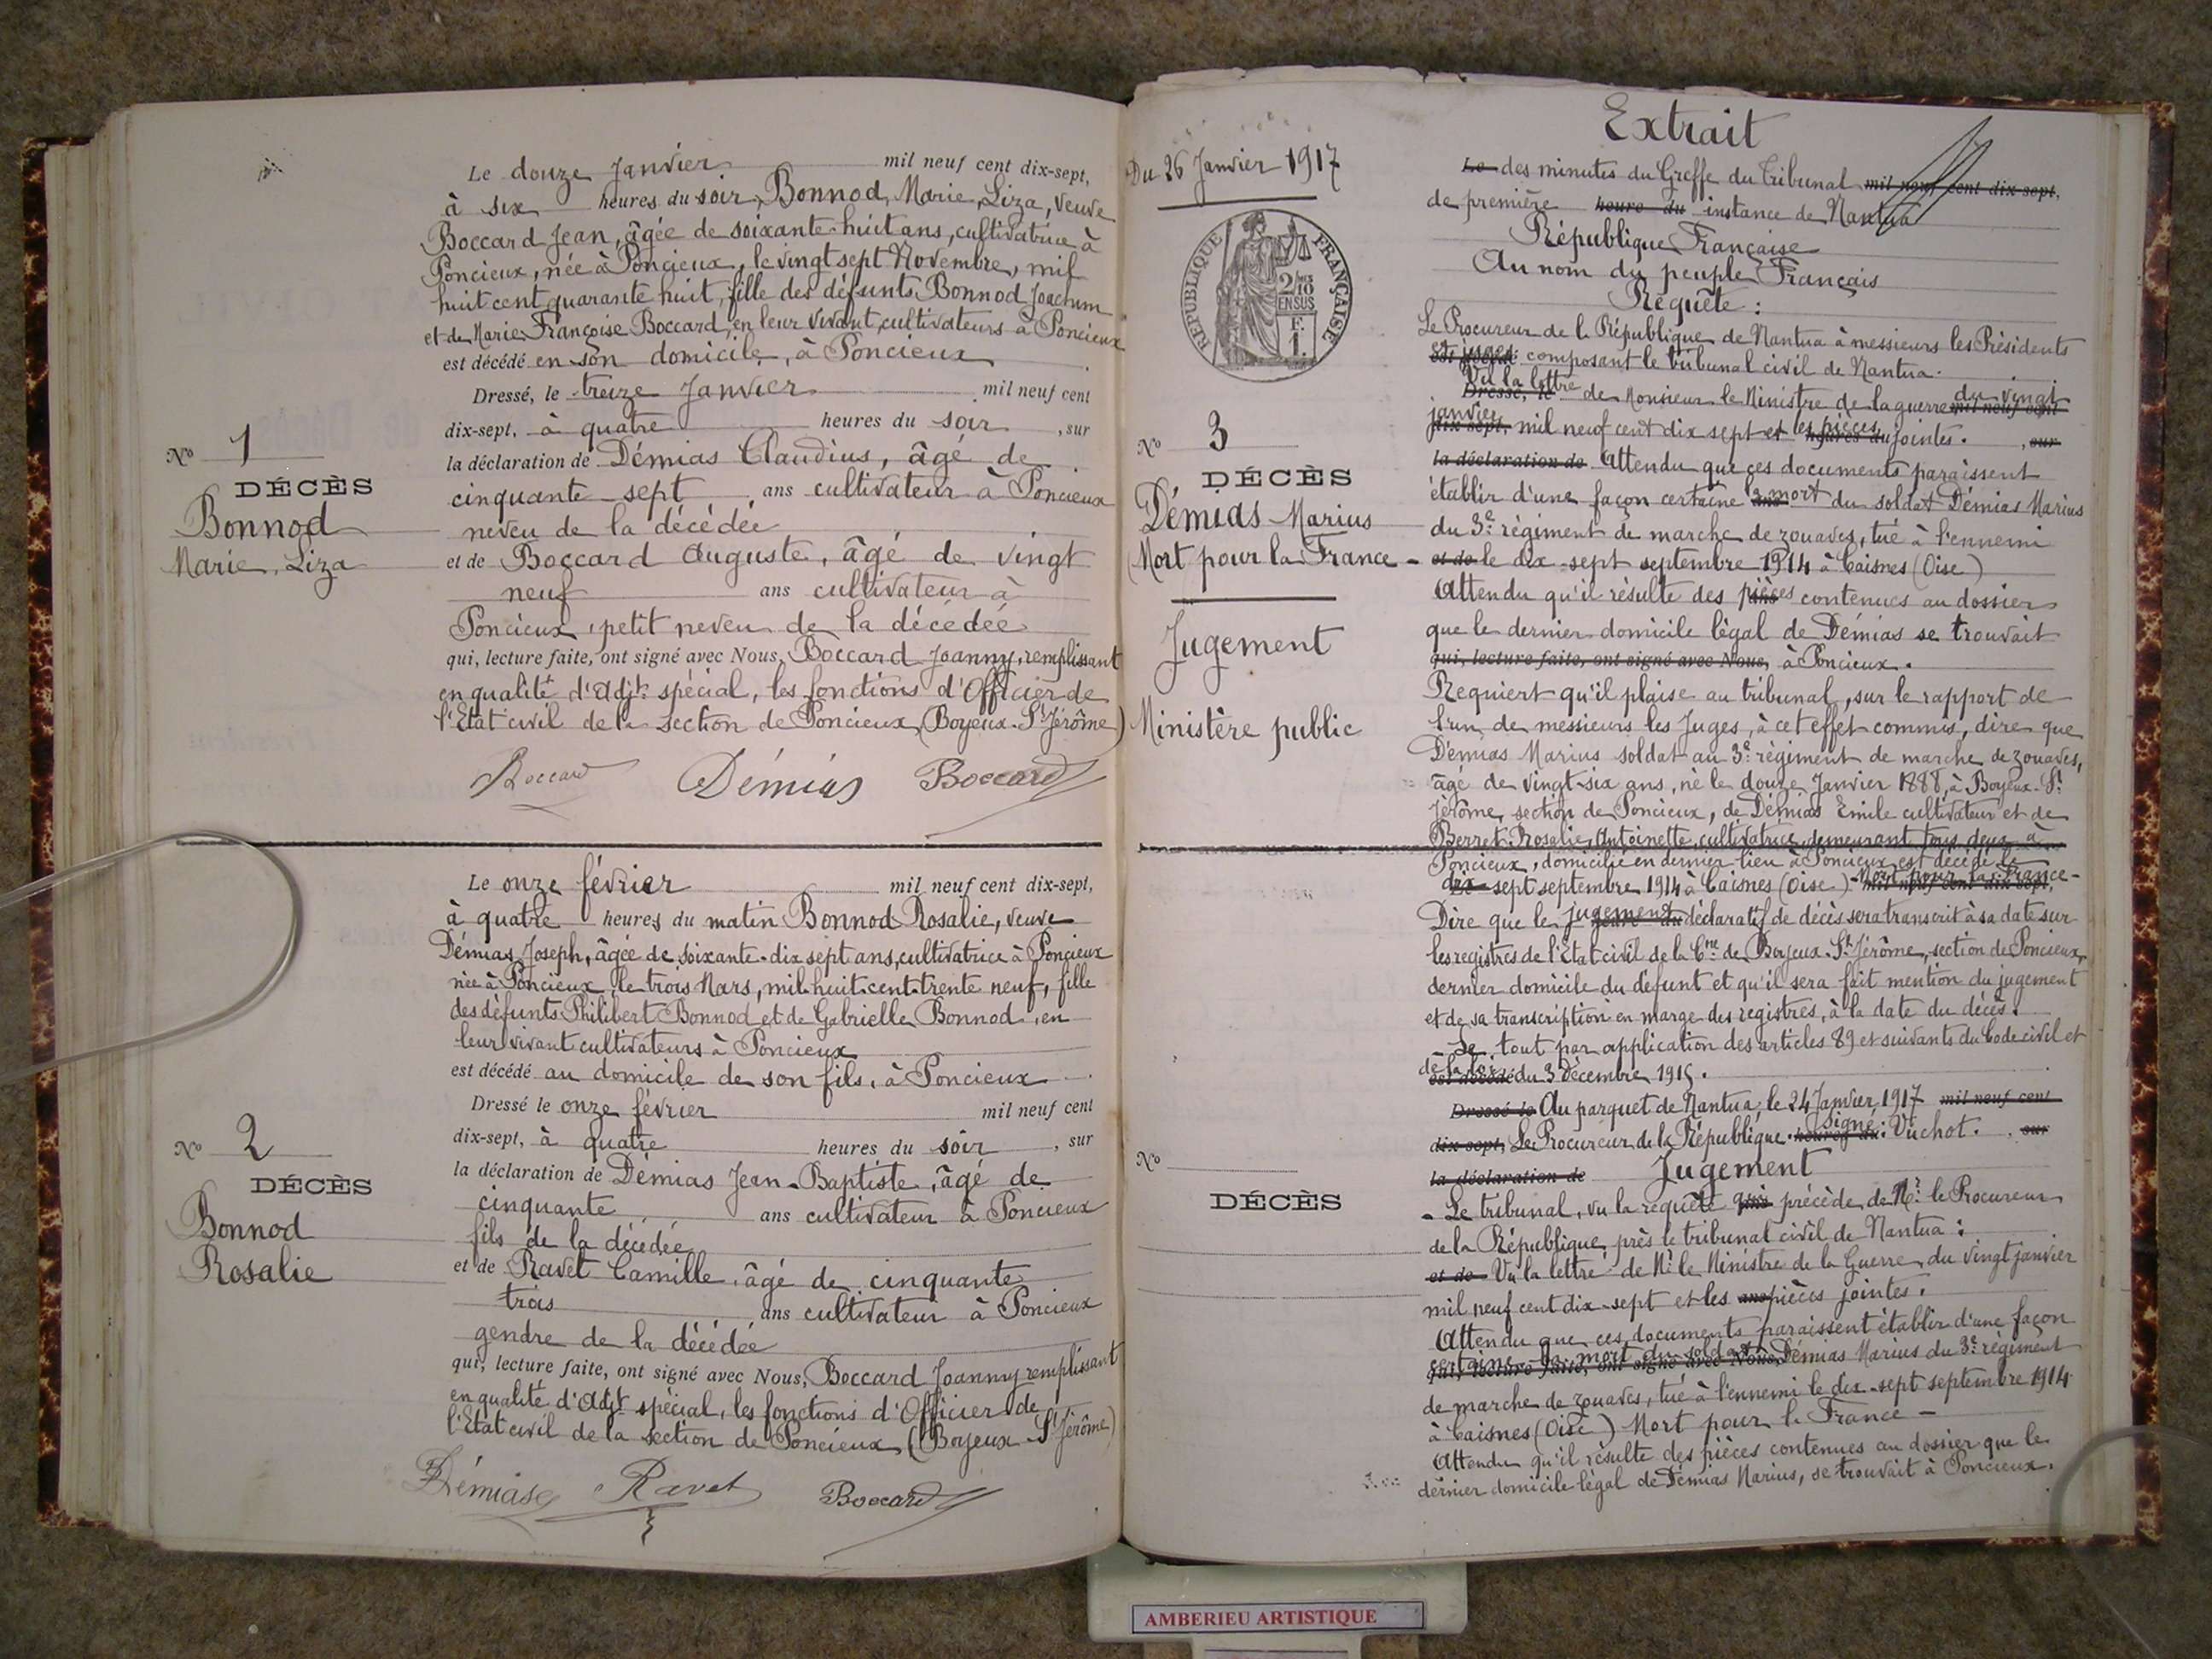 Le douze Janvier mil neuf cent dix-sept,
à six heures du soir, Bonnod, Marie, Liza, veuve
Boccard Jean, âgée de soixante-huit ans, cultivatrice à
Poncieux, née à Poncieux, le vingt sept Novembre, mil
huit cent quarante huit, fille des défunts Bonnod Joachim
et de Marie Françoise Boccard, en leur vivant, cultivateurs à Poncieux
est décédé en son domicile, à Poncieux
Dressé, le treize Janvier mil neuf cent
dix-sept, à quatre heures du soir, sur
la déclaration de Démias Claudius, âgé de
cinquante-sept ans cultivateur à Poncieux
neveu de la décédée
et de Boccard Auguste, âgé de vingt
neuf ans cultivateur à
Poncieux, petit neveu de la décédée
qui, lecture faite, ont signé avec Nous, Boccard Joanny, remplissant
en qualité d'Adjt spécial, les fonctions d'Officier de
l'Etat civil de la section de Poncieux (Boyeux-St Jérôme)
Boccard Démias Boccard
No 1
DÉCÈS
Bonnod
Marie, Liza
Le onze février mil neuf cent dix-sept,
à quatre heures du matin Bonnod Rosalie, veuve
Démias Joseph, âgée de soixante-dix sept ans, cultivatrice à Poncieux
née à Poncieux, le trois Mars, mil-huit-cent-trente neuf, fille
des défunts Philibert Bonnod et de Gabrielle Bonnod, en
leur vivant cultivateurs à Poncieux
est décédé au domicile de son fils, à Poncieux
Dressé le onze février mil neuf cent
dix-sept, à quatre heures du soir, sur
la déclaration de Démias Jean-Baptiste, âgé de
cinquante ans cultivateur à Poncieux
fils de la décédée
et de Ravet Camille, âgé de cinquante
trois ans cultivateur à Poncieux
gendre de la décédée
qui, lecture faite, ont signé avec Nous, Boccard Joanny remplissant
en qualité d'Adjt spécial, les fonctions d'Officier de
l'Etat civil de la section de Poncieux, (Boyeux-St Jérôme)
Démias Ravet Boccard
No 2
DÉCÈS
Bonnod
Rosalie
Du 26 Janvier 1917
RÉPUBLIQUE FRANÇAISE
2/10
EN SUS
F.
1.
No 3
DÉCÈS
Démias Marius
Mort pour la France -
Jugement
Ministère public
No
DÉCÈS
Extrait
Le des minutes du Greffe du Tribunal mil neuf cent dix-sept,
de première heure du instance de Nantua
République Française
Au nom du peuple Français
Requête :
Le Procureur de la République de Nantua à messieurs les Présidents
et juges composant le tribunal civil de Nantua.
Vu la lettre de Monsieur le Ministre de la guerre du vingt
janvier mil neuf cent dix sept et les pièces jointes. , sur
la déclaration de Attendu que ces documents paraissent
établir d'une façon certaine la mort du soldat Démias Marius
du 3e régiment de marche de zouaves, tué à l'ennemi
et de le dix-sept septembre 1914 à Caisnes (Oise)
Attendu qu'il résulte des pièces contenues au dossier
que le dernier domicile légal de Démias se trouvait
qui, lecture faite, ont signé avec Nous, à Poncieux.
Requiert qu'il plaise au tribunal, sur le rapport de
l'un de messieurs les Juges, à cet effet commis, dire que
Démias Marius soldat au 3e régiment de marche de zouaves,
âgé de vingt-six ans, né le douze Janvier 1888, à Boyeux-St
Jérôme, section de Poncieux, de Démias Emile cultivateur et de
Berret Rosalie, Antoinette, cultivatrice, demeurant tous deux à
Poncieux, domicilié en dernier lieu à Poncieux, est décédé le
dix-sept septembre 1914 à Caisnes (Oise) - Mort pour la France - mil neuf cent dix-sept,
Dire que le jugement déclaratif de décès sera transcrit à sa date sur
les registres de l'Etat civil de la Cne de Boyeux-St Jérôme, section de Poncieux,
dernier domicile du défunt et qu'il sera fait mention du jugement
et de sa transcription en marge des registres, à la date du décès.
Le tout par application des articles 89 et suivants du Code civil et
de la loi du 3 Décembre 1915.
Dressé le Au parquet de Nantua, le 24 Janvier 1917 mil neuf cent
dix-sept, Le Procureur de la République. heures du signé : Vuchot. , sur
la déclaration de Jugement
- Le tribunal, vu la requête qui précède, de Mr le Procureur
de la République, près le tribunal civil de Nantua :
et de Vu la lettre de Mr le Ministre de la Guerre, du vingt janvier
mil neuf cent dix-sept et les ans pièces jointes.
Attendu que ces documents paraissent établir d'une façon
certaine la mort du soldat Démias Marius du 3e régiment
de marche de zouaves, tué à l'ennemi le dix-sept septembre 1914
à Caisnes (Oise) Mort pour la France -
Attendu qu'il résulte des pièces contenues au dossier que le
dernier domicile légal de Démias Marius, se trouvait à Poncieux.
AMBERIEU ARTISTIQUE